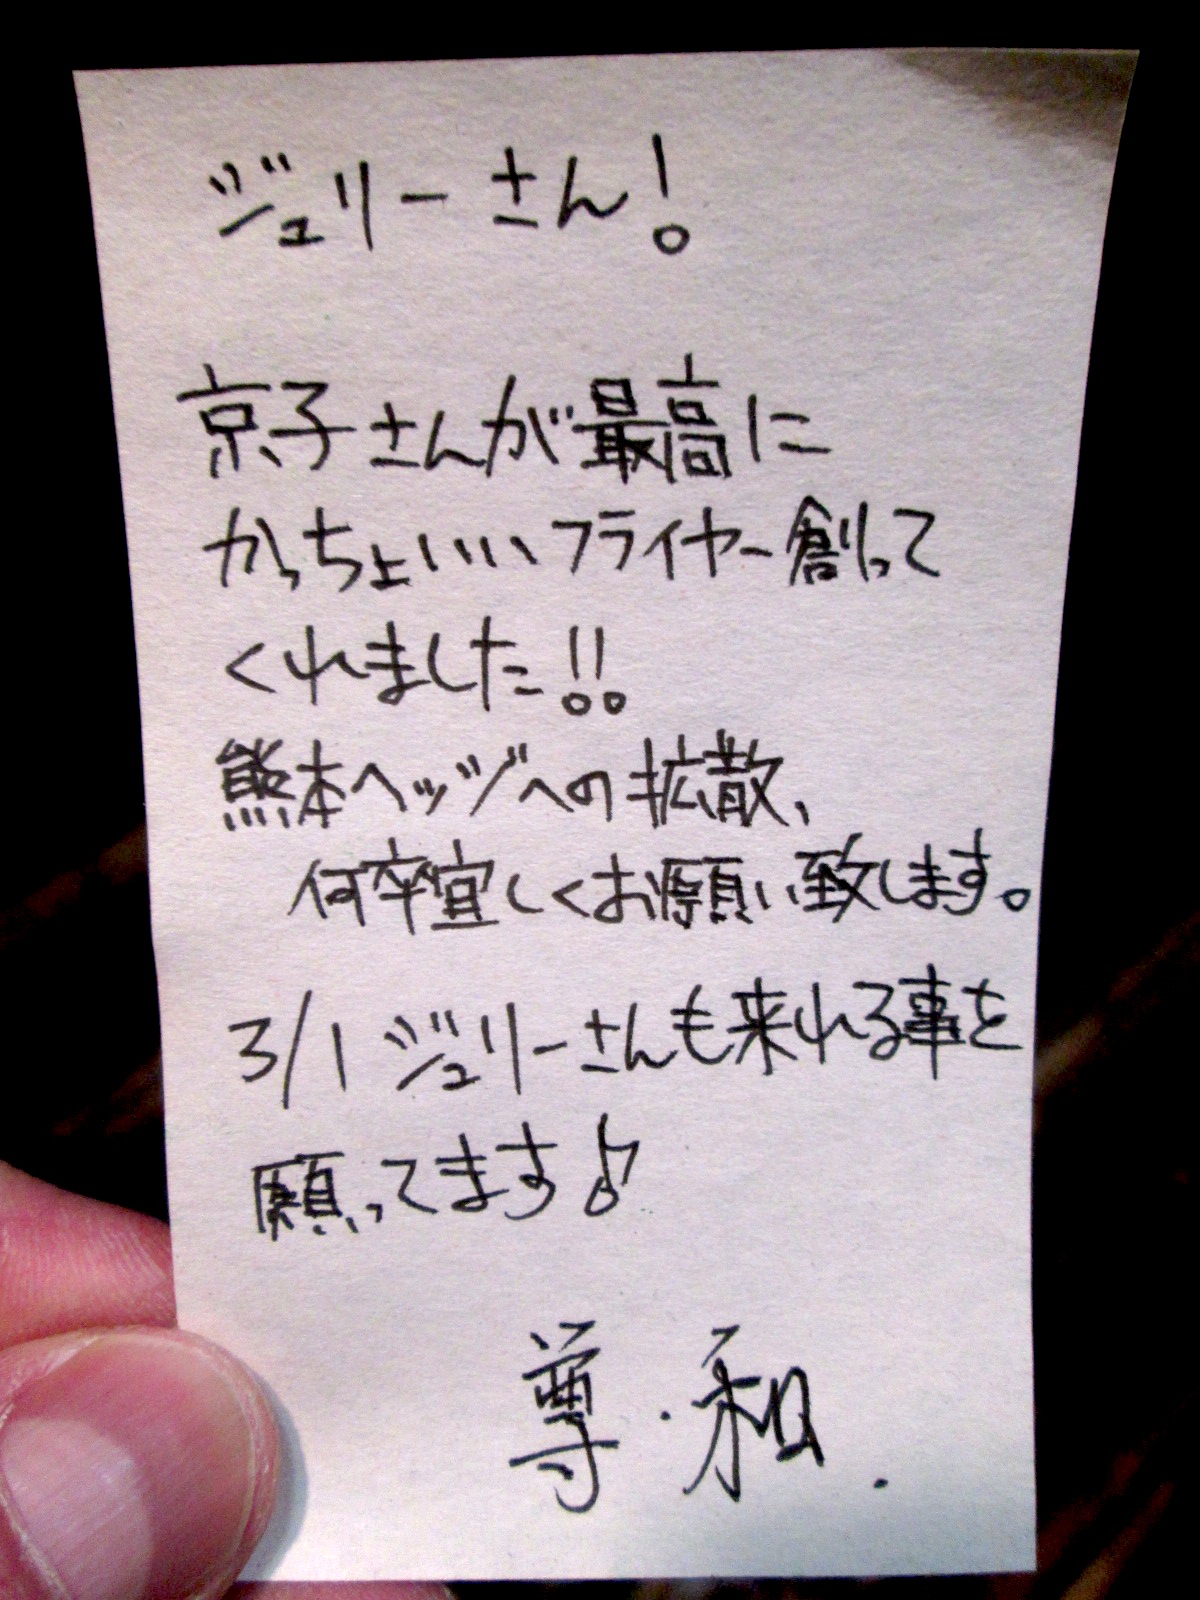 ジュリーさん!
京子さんが最高に
かっちょいいフライヤー創って
くれました!!
熊本ヘッズへの拡散、
何卒宜しくお願い致します。
3/1 ジュリーさんも来れる事を
願ってます♪
尊・和.